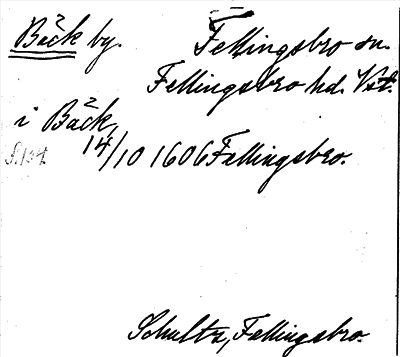 Bäck by. Fellingsbro sn.
Fellingsbro hd. Vstm.
i Bäck,
14/10 1606 Fellingsbro.
S. 134
Schultz, Fellingsbro.